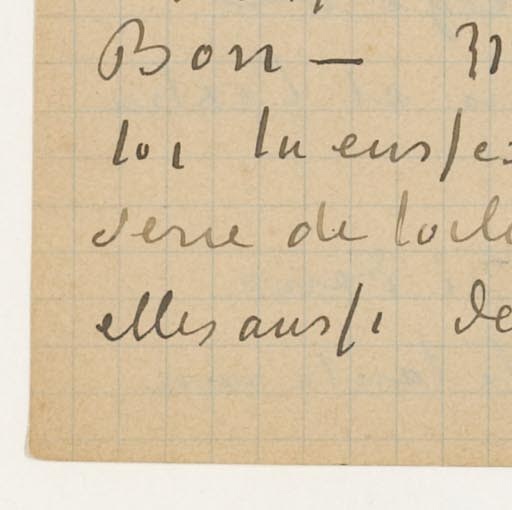 Bon —
toi tu eusses
serie de toile
elles aussi de